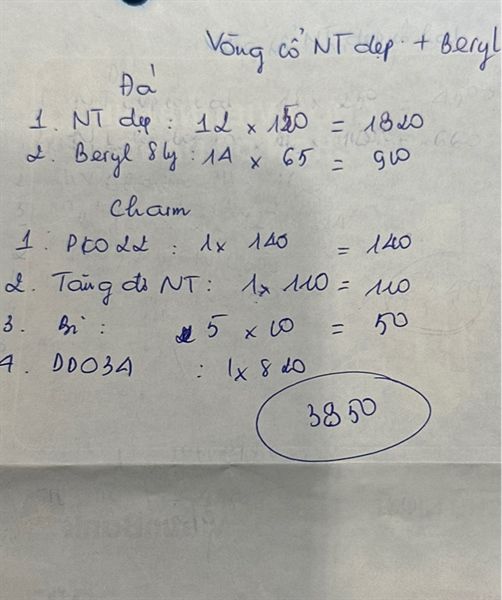 Vòng cổ NT dẹp + Beryl
Đá
1. NT dẹp : 12 x 150 = 1820
2. Beryl 8ly : 14 x 65 = 910
Charm
1. PK022 : 1 x 140 = 140
2. Tăng đơ NT : 1 x 110 = 110
3. Bi : 5 x 10 = 50
4. DD034 : 1 x 820
3850